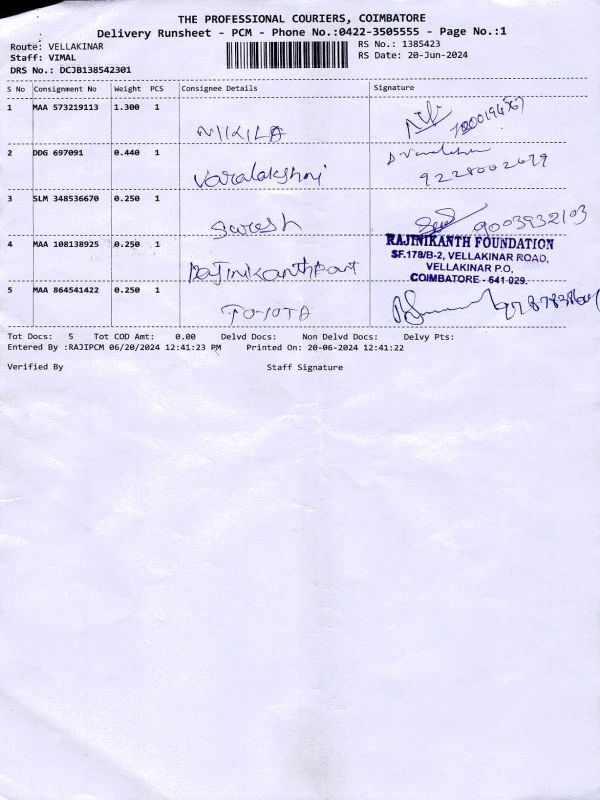 THE PROFESSIONAL COURIERS, COIMBATORE
Delivery Runsheet - PCM - Phone No.:0422-3505555 - Page No.:1
Route: VELLAKINAR
Staff: VIMAL
DRS No.: DCJB138542301
RS No.: 1385423
RS Date: 20-Jun-2024
S No Consignment No Weight PCS Consignee Details Signature
1 MAA 573219113 1.300 1
NIKILA
2 DDG 697091 0.440 1
Varalakshmi
3 SLM 348536670 0.250 1
Suresh 9003932103
4 MAA 108138925 0.250 1
RAJINIKANTH FOUNDATION
SF.178/B-2, VELLAKINAR ROAD,
VELLAKINAR P.O,
COIMBATORE - 641 029.
5 MAA 864541422 0.250 1
TOYOTA
Tot Docs: 5 Tot COD Amt: 0.00 Delvd Docs: Non Delvd Docs: Delvy Pts:
Entered By :RAJIPCM 06/20/2024 12:41:23 PM Printed On: 20-06-2024 12:41:22
Verified By Staff Signature